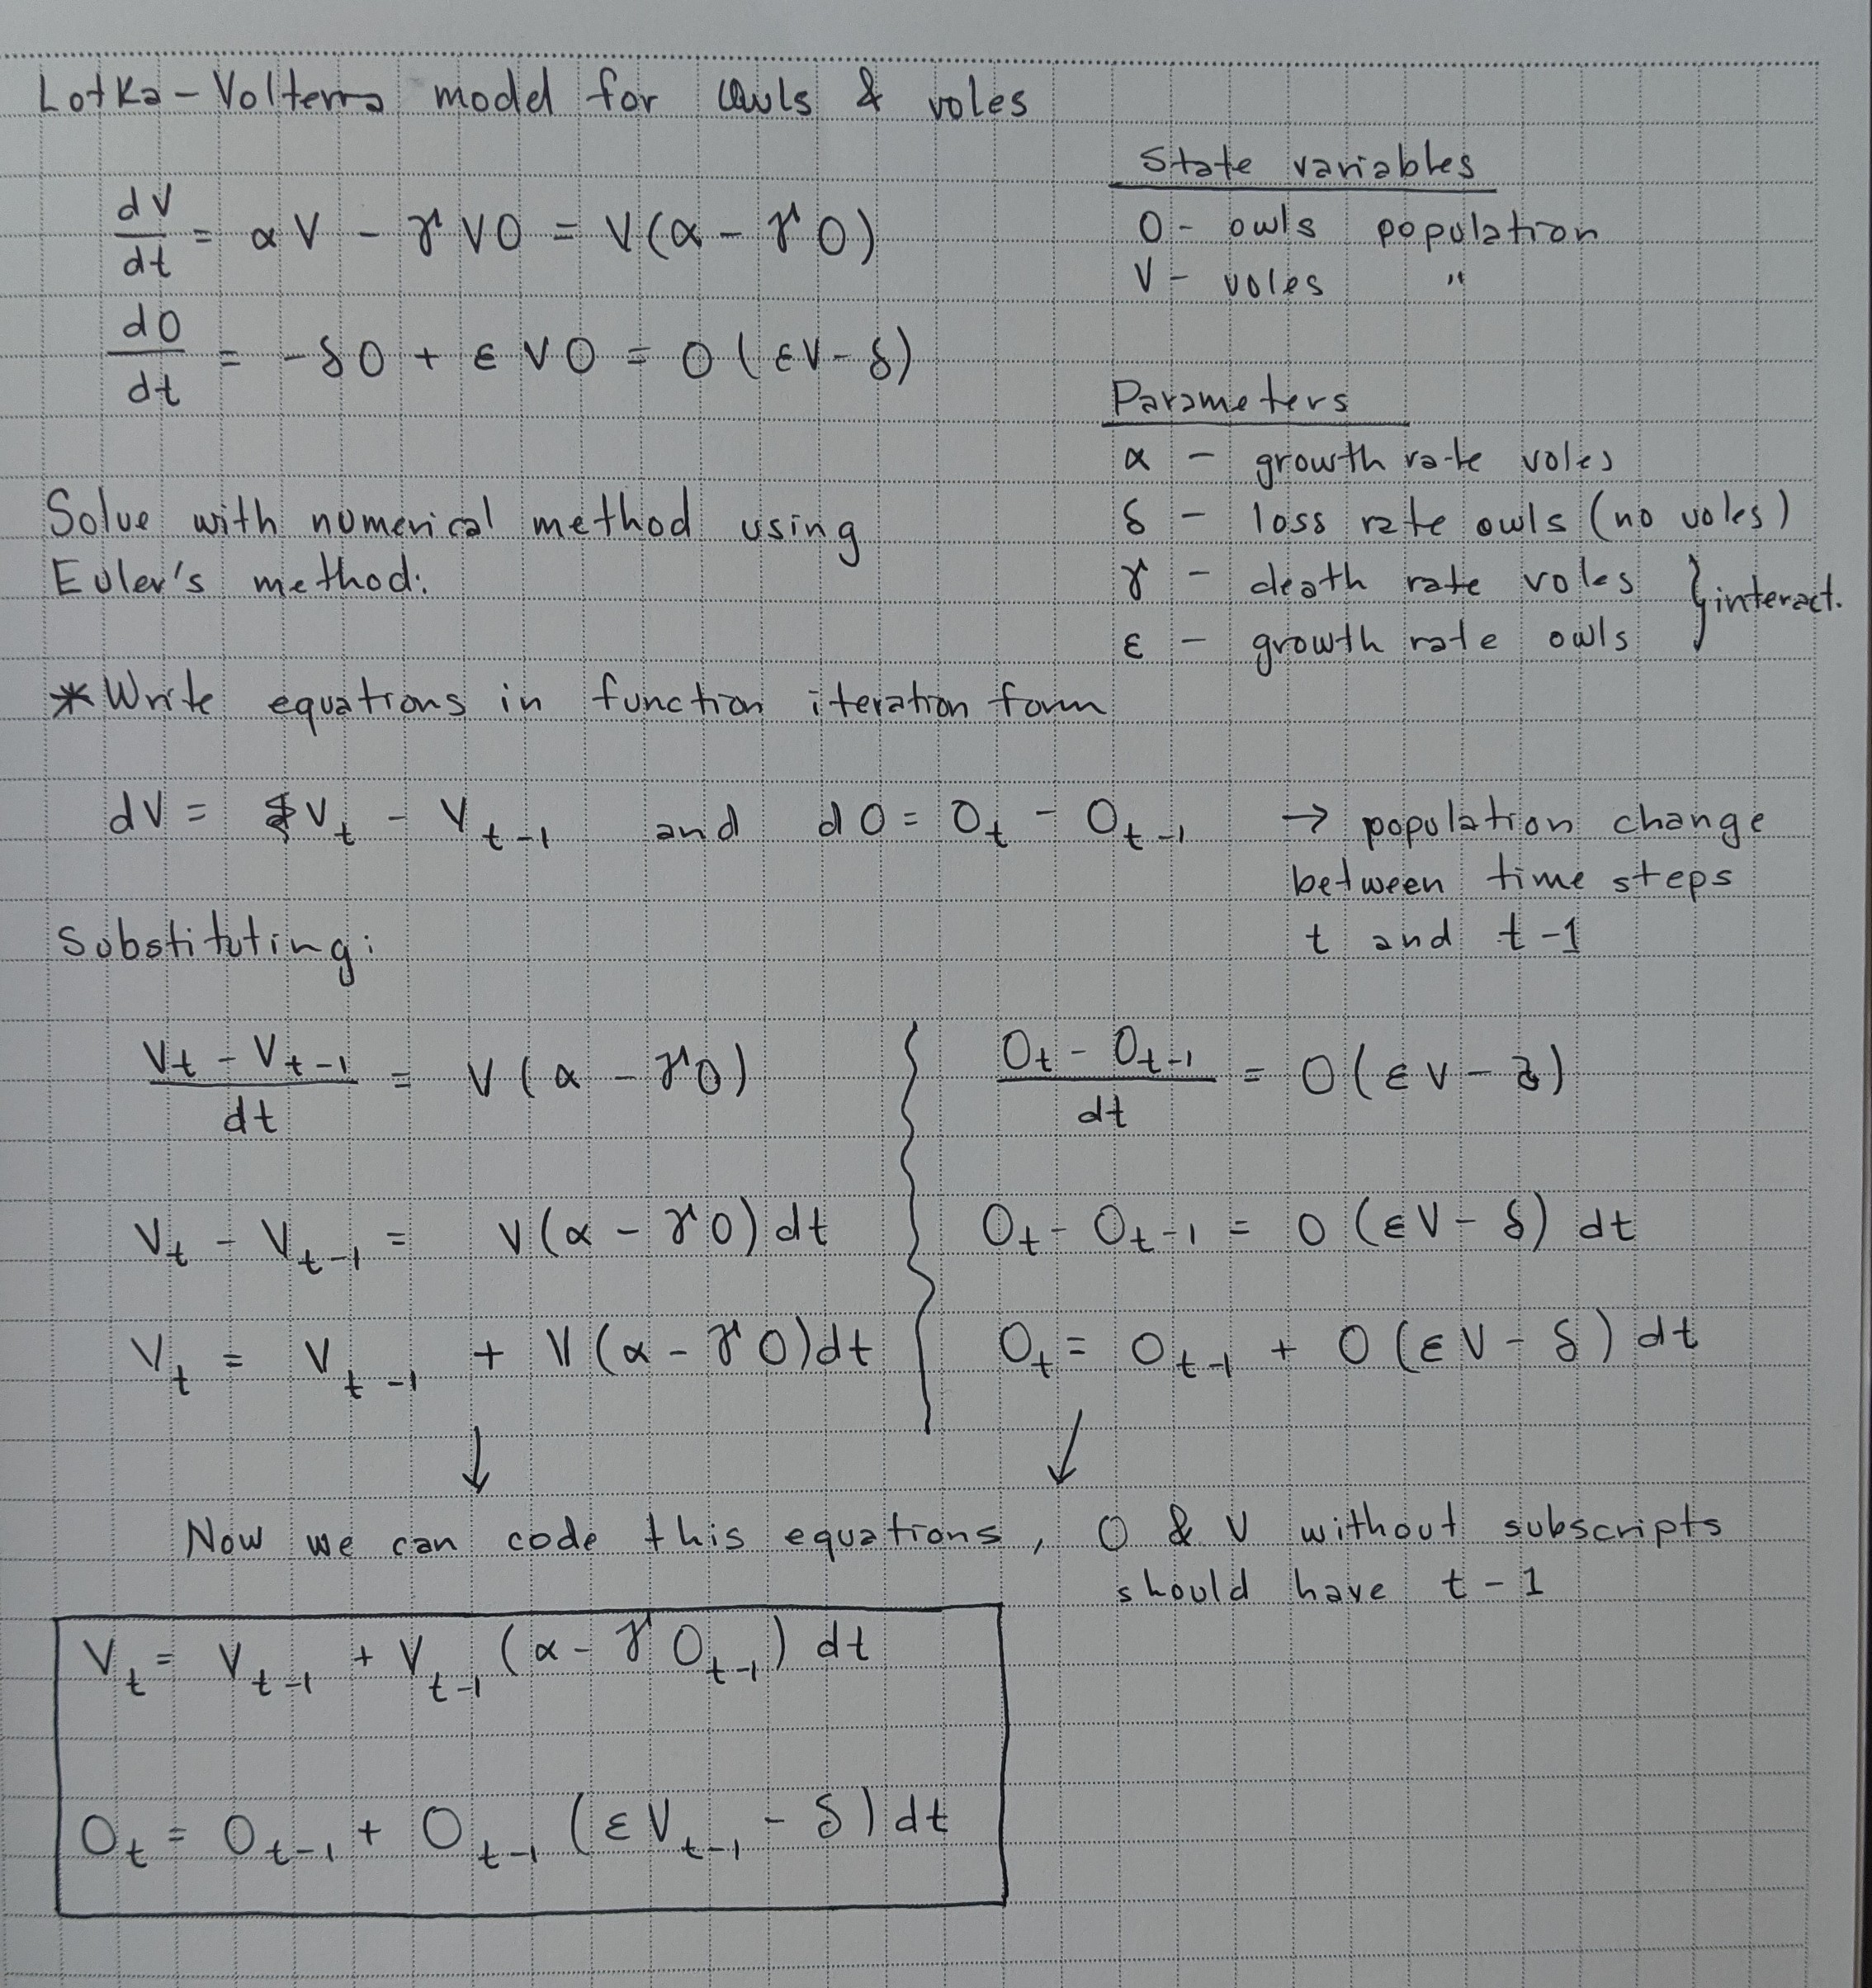 Lotka-Volterra model for owls & voles
dV/dt = αV - γVO = V(α - γO)
dO/dt = -δO + εVO = O(εV - δ)
State variables
O - owls population
V - voles "
Parameters
α - growth rate voles
δ - loss rate owls (no voles)
γ - death rate voles
ε - growth rate owls
} interact.
Solve with numerical method using
Euler's method:
* Write equations in function iteration form
dV = V_t - V_{t-1} and dO = O_t - O_{t-1} → population change
between time steps
t and t-1
Substituting:
(V_t - V_{t-1})/dt = V(α - γO)
V_t - V_{t-1} = V(α - γO)dt
V_t = V_{t-1} + V(α - γO)dt
(O_t - O_{t-1})/dt = O(εV - δ)
O_t - O_{t-1} = O(εV - δ)dt
O_t = O_{t-1} + O(εV - δ)dt
↓ ↓
Now we can code this equations, O & V without subscripts
should have t-1
V_t = V_{t-1} + V_{t-1}(α - γO_{t-1})dt
O_t = O_{t-1} + O_{t-1}(εV_{t-1} - δ)dt